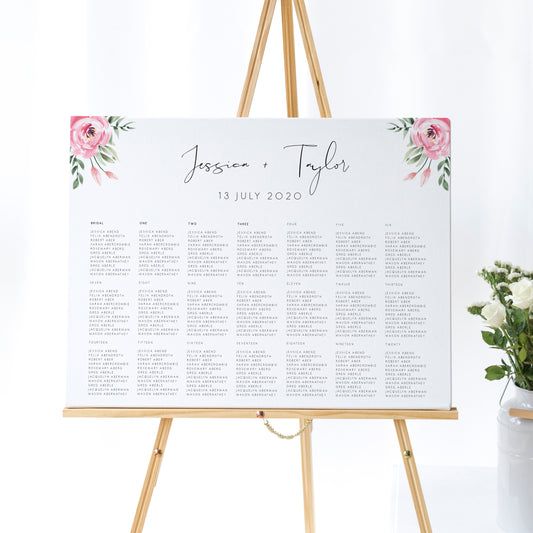 Jessica + Taylor
13 JULY 2020
BRIDAL
JESSICA ABEND
FELIX ABENDROTH
ROBERT ABER
SARAH ABERCROMBIE
ROSEMARY ABERG
GREG ABERLE
JACQUELYN ABERMAN
ONE
JESSICA ABEND
FELIX ABENDROTH
ROBERT ABER
SARAH ABERCROMBIE
ROSEMARY ABERG
GREG ABERLE
JACQUELYN ABERMAN
TWO
JESSICA ABEND
FELIX ABENDROTH
ROBERT ABER
SARAH ABERCROMBIE
ROSEMARY ABERG
GREG ABERLE
JACQUELYN ABERMAN
THREE
JESSICA ABEND
FELIX ABENDROTH
ROBERT ABER
SARAH ABERCROMBIE
ROSEMARY ABERG
GREG ABERLE
JACQUELYN ABERMAN
FOUR
JESSICA ABEND
FELIX ABENDROTH
ROBERT ABER
SARAH ABERCROMBIE
ROSEMARY ABERG
GREG ABERLE
JACQUELYN ABERMAN
FIVE
JESSICA ABEND
FELIX ABENDROTH
ROBERT ABER
SARAH ABERCROMBIE
ROSEMARY ABERG
GREG ABERLE
JACQUELYN ABERMAN
SIX
JESSICA ABEND
FELIX ABENDROTH
ROBERT ABER
SARAH ABERCROMBIE
ROSEMARY ABERG
GREG ABERLE
JACQUELYN ABERMAN
SEVEN
JESSICA ABEND
FELIX ABENDROTH
ROBERT ABER
SARAH ABERCROMBIE
ROSEMARY ABERG
GREG ABERLE
JACQUELYN ABERMAN
MASON ABERNATHEY
EIGHT
JESSICA ABEND
FELIX ABENDROTH
ROBERT ABER
SARAH ABERCROMBIE
ROSEMARY ABERG
GREG ABERLE
JACQUELYN ABERMAN
MASON ABERNATHEY
NINE
JESSICA ABEND
FELIX ABENDROTH
ROBERT ABER
SARAH ABERCROMBIE
ROSEMARY ABERG
GREG ABERLE
JACQUELYN ABERMAN
MASON ABERNATHEY
TEN
JESSICA ABEND
FELIX ABENDROTH
ROBERT ABER
SARAH ABERCROMBIE
ROSEMARY ABERG
GREG ABERLE
JACQUELYN ABERMAN
MASON ABERNATHEY
ELEVEN
JESSICA ABEND
FELIX ABENDROTH
ROBERT ABER
SARAH ABERCROMBIE
ROSEMARY ABERG
GREG ABERLE
JACQUELYN ABERMAN
MASON ABERNATHEY
TWELVE
JESSICA ABEND
FELIX ABENDROTH
ROBERT ABER
SARAH ABERCROMBIE
ROSEMARY ABERG
GREG ABERLE
JACQUELYN ABERMAN
MASON ABERNATHEY
THIRTEEN
JESSICA ABEND
FELIX ABENDROTH
ROBERT ABER
SARAH ABERCROMBIE
ROSEMARY ABERG
GREG ABERLE
JACQUELYN ABERMAN
MASON ABERNATHEY
FOURTEEN
JESSICA ABEND
FELIX ABENDROTH
ROBERT ABER
SARAH ABERCROMBIE
ROSEMARY ABERG
GREG ABERLE
JACQUELYN ABERMAN
MASON ABERNATHEY
FIFTEEN
JESSICA ABEND
FELIX ABENDROTH
ROBERT ABER
SARAH ABERCROMBIE
ROSEMARY ABERG
GREG ABERLE
JACQUELYN ABERMAN
MASON ABERNATHEY
SIXTEEN
JESSICA ABEND
FELIX ABENDROTH
ROBERT ABER
SARAH ABERCROMBIE
ROSEMARY ABERG
GREG ABERLE
JACQUELYN ABERMAN
MASON ABERNATHEY
SEVENTEEN
JESSICA ABEND
FELIX ABENDROTH
ROBERT ABER
SARAH ABERCROMBIE
ROSEMARY ABERG
GREG ABERLE
JACQUELYN ABERMAN
MASON ABERNATHEY
EIGHTEEN
JESSICA ABEND
FELIX ABENDROTH
ROBERT ABER
SARAH ABERCROMBIE
ROSEMARY ABERG
GREG ABERLE
JACQUELYN ABERMAN
MASON ABERNATHEY
NINETEEN
JESSICA ABEND
FELIX ABENDROTH
ROBERT ABER
SARAH ABERCROMBIE
ROSEMARY ABERG
GREG ABERLE
JACQUELYN ABERMAN
MASON ABERNATHEY
TWENTY
JESSICA ABEND
FELIX ABENDROTH
ROBERT ABER
SARAH ABERCROMBIE
ROSEMARY ABERG
GREG ABERLE
JACQUELYN ABERMAN
MASON ABERNATHEY